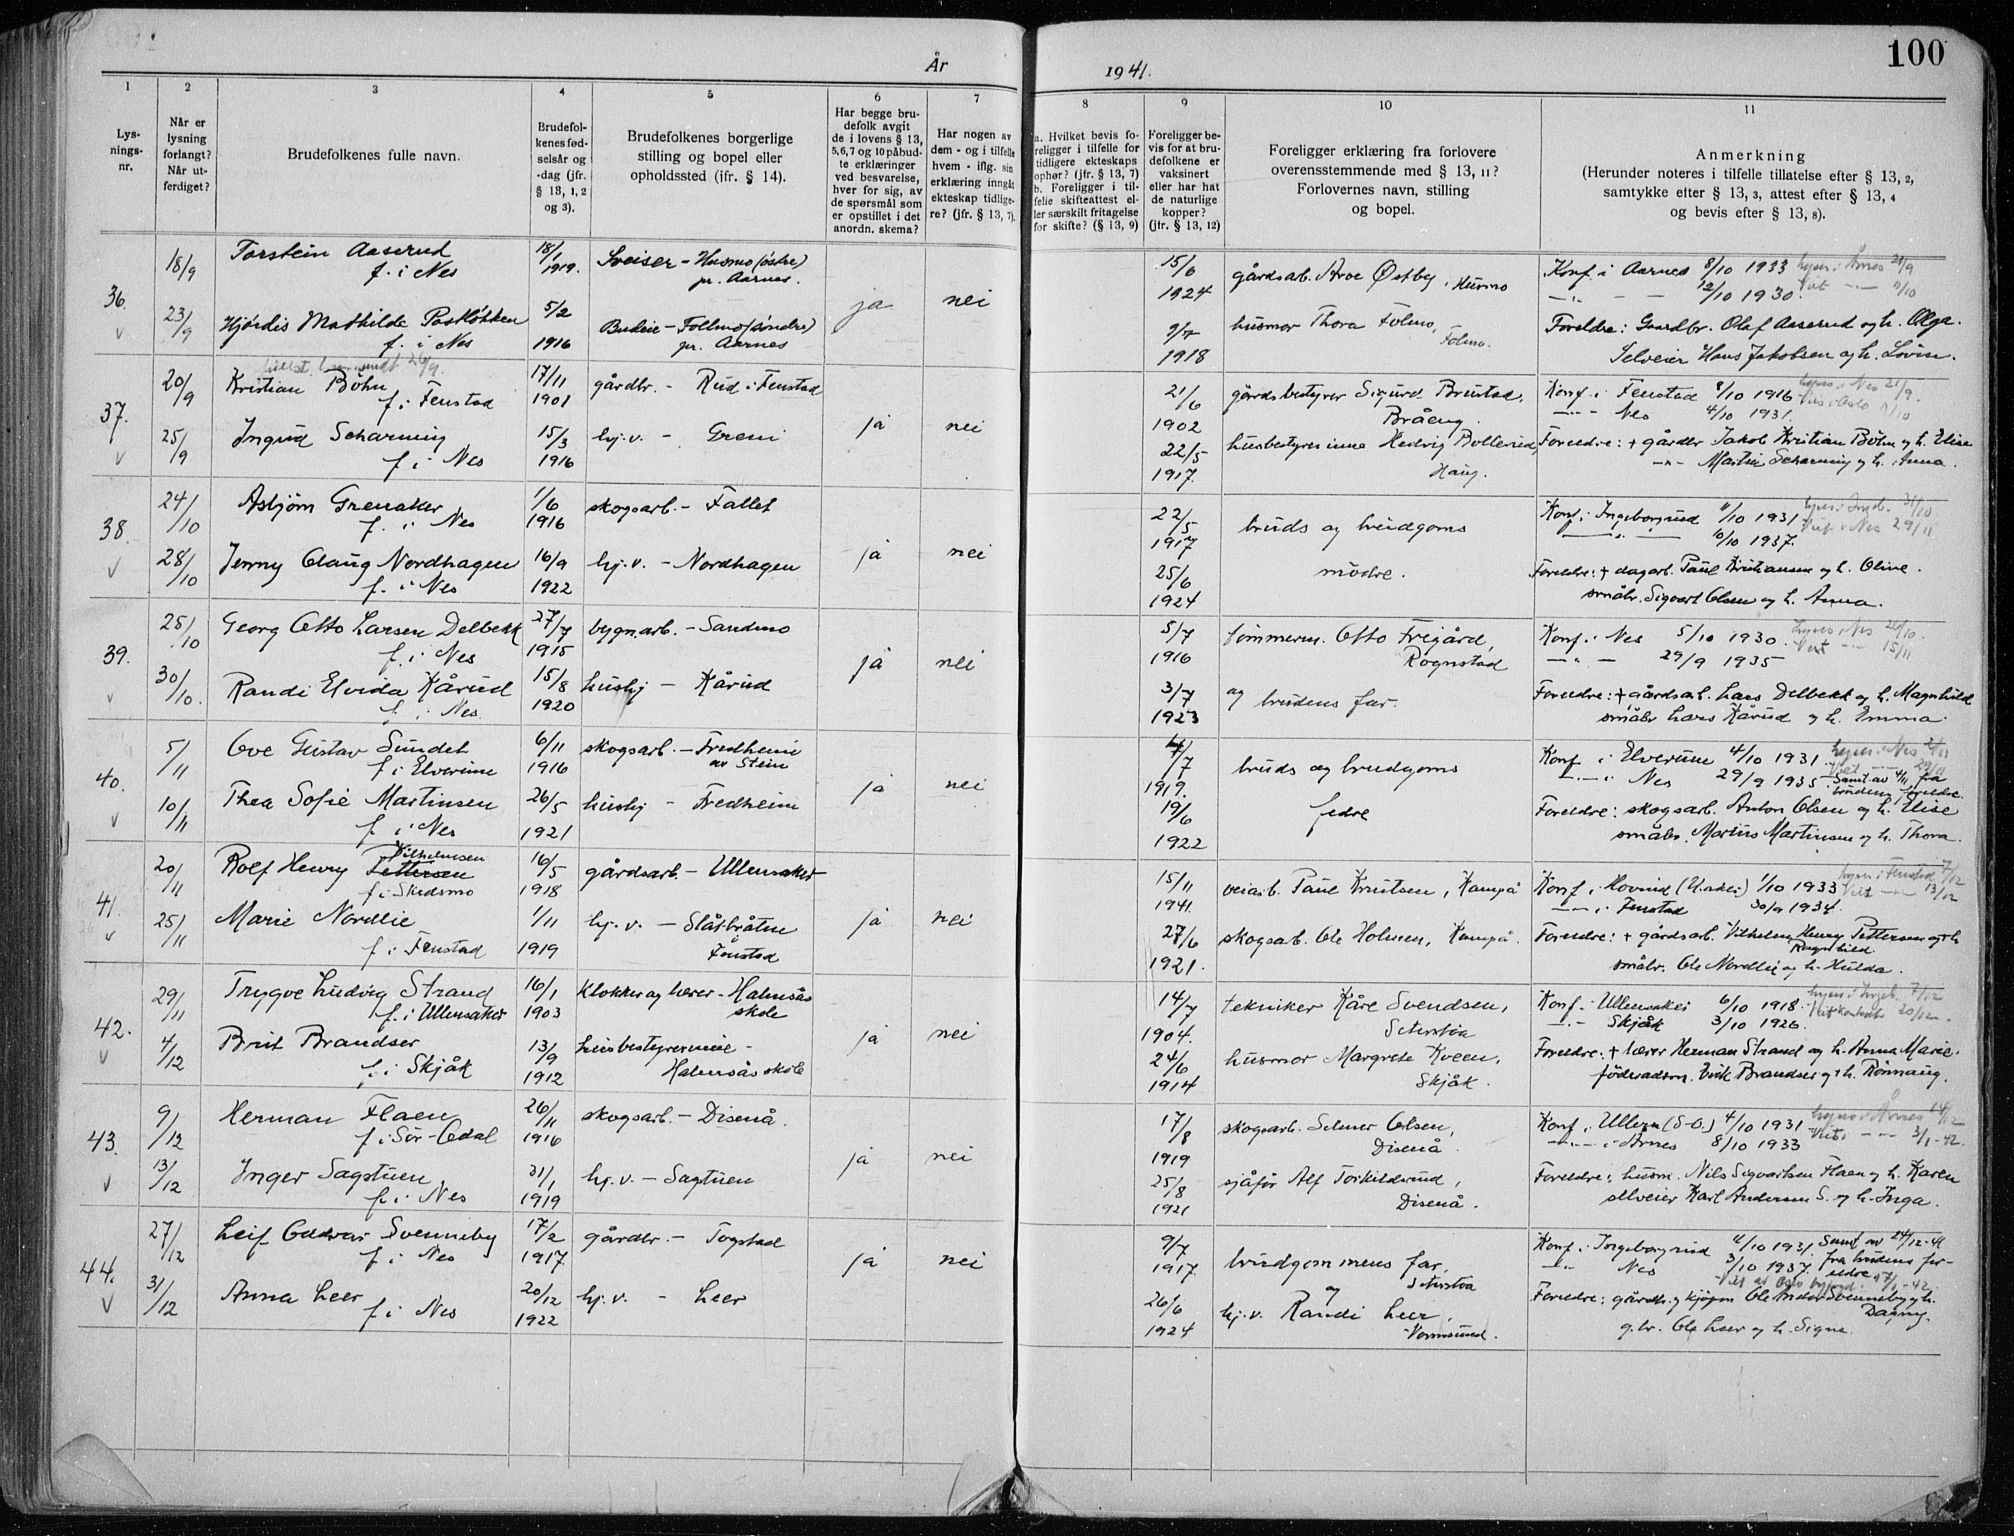 100
År 1941.
1 2 3 4 5 6 7 8 9 10 11
Lys-
nings-
nr.
Når er
lysning
forlangt?
Når ut-
ferdiget?
Brudefolkenes fulle navn.
Brudefol-
kenes fød-
selsår og
-dag (jfr.
§ 13, 1, 2
og 3).
Brudefolkenes borgerlige
stilling og bopel eller
opholdssted (ifr. § 14).
Har begge bru-
defolk avgit
de i lovens § 13,
5,6,7 og 10 påbud-
te erklæringer
ved besvarelse,
hver for sig, av
de spørsmål som
er opstillet i det
anordn. skema?
Har nogen av
dem - og i tilfelle
hvem - iflg. sin
erklæring inngåt
ekteskap tidlige-
re? (jfr. § 13, 7).
a. Hvilket bevis fo-
religger i tilfelle for
tidligere ekteskaps
ophør? (jfr. § 13, 7)
b. Foreligger i til-
felle skifteattest el-
ler særskilt fritagelse
for skifte? (§ 13, 9)
Foreligger be-
vis for at bru-
defolkene er
vaksinert
eller har hat
de naturlige
kopper?
(jfr. § 13, 12)
Foreligger erklæring fra forlovere
overensstemmende med § 13, 11?
Forlovernes navn, stilling
og bopel.
Anmerkning
(Herunder noteres i tilfelle tillatelse efter § 13, 2,
samtykke efter § 13, 3, attest efter § 13, 4
og bevis efter § 13, 8).
36. 18/9 Torstein Aaserud 18/1 1919. Sveiser - Husmo (østre)
f. i Nes pr. Aarnes.
23/9 Hjördis Mathilde Pastløkken 5/2 1916 Budeie - Follmo (søndre)
f. i Nes pr. Aarnes
ja nei
15/6 1924 gårdsarb. Arve Østby, Husmo
9/7 1918 husmor Thora Folmo, Folmo.
Konf. i Aarnes 8/10 1933 lyses i Årnes 21/9
12/10 1930.
Foreldre: Gaardbr. Olaf Aaserud og h. Olga.
Selveier Hans Jakobsen og h. Lovise.
37. 20/9 Kristian Böhn 17/11 1901 gårdbr. - Rud i Fenstad
f. i Fenstad
25/9 Ingrid Scharning 15/3 1916 hj.v. - Greni
f. i Nes
ja nei
21/6 1902 gårdsbestyrer Sigurd Brustad,
Bråeng.
22/5 1917. husbestyrerinne Hedvig Bollerud,
Haug.
Konf. i Fenstad 8/10 1916 lyses i Nes 21/9.
Nes 4/10 1931.
Foreldre: + gårdbr Jakob Kristian Böhn og h. Elise
Martin Scharning og h. Anna.
38. 24/10 Asbjørn Grenaker 1/6 1916 skogsarb. - Fallet
f. i Nes
28/10 Jenny Olaug Nordhagen 16/9 1922 hj.v. - Nordhagen
f. i Nes
ja nei
22/5 1917 bruds og brudgoms
25/6 1924 mødre.
Konf. i Ingeborgrud 11/10 1931
6/10 1937.
Foreldre: + dagarb. Paul Kristiansen og h. Oline.
småbr. Sigvart Olsen og h. Anna.
39. 25/10 Georg Otto Larsen Delbekk 27/7 1915 bygn.arb. - Sandmo
f. i Nes
30/10. Randi Elvida Kårud 15/8 1920 hushj - Kårud
f. i Nes
ja nei
5/7 1916 tømmerm. Otto Frigård,
Rognstad
3/7 1923 og brudens far.
Konf. i Nes 5/10 1930. lyses i Nes 26/10.
29/9 1935 Viet 15/11
Foreldre: + gårdsarb. Lars Delbekk og h. Magnhild
småbr Lars Kårud og h. Emma.
40. 5/11 Ove Gustav Sundet 6/11 1916 skogsarb. - Fredheim
f. i Elverum av Stein
10/11 Thea Sofie Martinsen 26/5 1921 hushj - Fredheim
f. i Nes
ja nei
1919. bruds og brudgoms
19/6 1922 fedre
Konf. i Elverum 4/10 1931.
i Nes 29/9 1935. Samt. av 4/11 fra
brudens foreldre.
Foreldre: skogsarb. Anton Olsen og h. Elise
småbr. Marius Martinsen og h. Thora.
41. 20/11 Rolf Henry Pettersen Vilhelmsen 16/5 1918 gårdsarb. - Ullensaker
f. i Skedsmo
25/11 Marie Nordlie 1/11 1919 hj.v. - Slåtbråten
f. i Fenstad Fenstad
ja nei
15/11 1941. veiarb. Paul Knutsen, Kampå
27/6 1921. skogsarb. Ole Holmen, Kampå.
Konf. i Hovind (U.saker) 1/10 1933 lyses i Fenstad 7/12
i Fenstad 30/9 1934. Viet 13/12
Foreldre: + gårdsarb. Vilhelm Henry Pettersen og h
Ragnhild
småbr. Ole Nordlie og h. Hulda.
42. 29/11 Trygve Ludvig Strand 16/1 1903 klokker og lærer - Halmsås
f. i Ullensaker skole
4/12 Brit Brandser 13/9 1912 husbestyrerinne -
f. i Skjåk Halmsås skole
ja nei
14/7 1904. tekniker Kåre Svendsen,
Seterstøa
24/6 1914 husmor Margrete Kveen,
Skjåk.
Konf. i Ullensaker 6/10 1918.
Skjåk 3/10 1926.
Foreldre: + lærer Herman Strand og h. Anna Marie.
føderådsm. Erik Brandser og h. Rönnaug.
43. 9/12 Herman Flaen 26/11 1916 skogsarb. - Disenå.
f. i Sør-Odal
13/12 Inger Sagstuen 21/1 1919 hj.v. - Sagtuen
f. i Nes
ja nei
17/8 1919 skogsarb. Selmer Olsen,
Disenå.
25/8 1921 sjåfør Alf Torkildsrud,
Disenå.
Konf. i Ullern (S-O.) 4/10 1931 lyses i Årnes 14/12
i Årnes 8/10 1933 3/1-42.
Foreldre: husm. Nils Sigvartsen Flaen og h. Karen
selveier Karl Andersen S. og h. Inga.
44. 27/12 Leif Oddvar Svenneby 17/2 1917 gårdbr. - Togstad
f. i Nes
31/12 Anna Leer 20/12 1922 hj.v. - Leer
f. i Nes
ja nei
9/7 1917. brudgommens far,
og Seterstøa
26/6 1924 hj.v. Randi Leer,
Vormsund.
Konf. i Ingeborgrud 11/10 1931. Samt av 24/12-41
Nes 3/10 1937. fra brudens for-
eldre.
Foreldre: gårdbr. og kjøpm Ole Andor Svenneby og h.
Dagny.
g.br. Ole Leer og h. Signe.